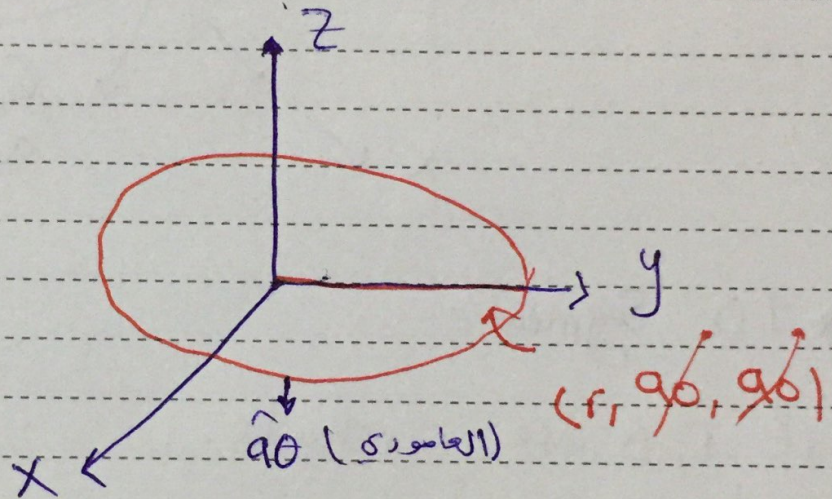 z
y
(r, 90, 90)
âθ (العامودي)
x